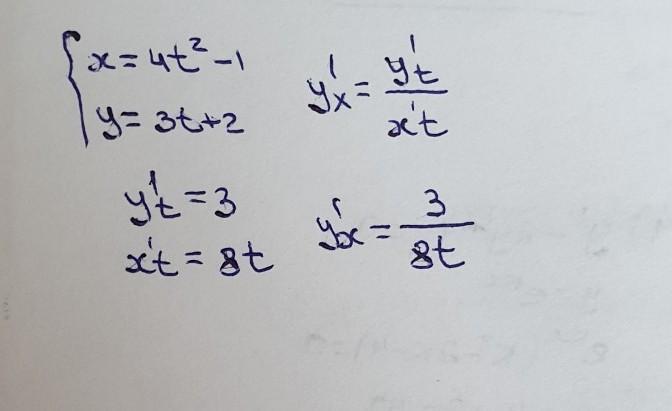 { x = 4t² - 1
y = 3t + 2
y'x = y't / x't
y't = 3
x't = 8t
y'x = 3 / 8t